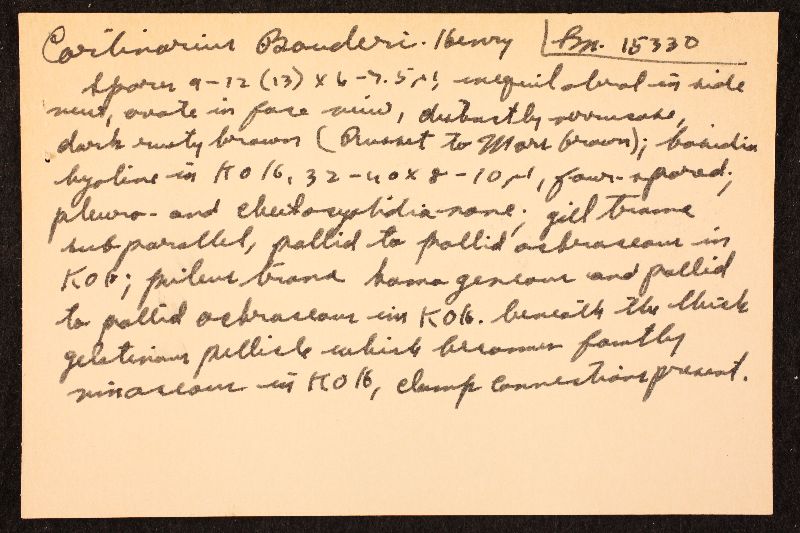 Cortinarius Bouderi. Henry | Bn. 15330
Spores 9-12 (13) x 6-7.5 µ, inequilateral in side
view, ovate in face view, distinctly verrucose,
dark rusty brown (Russet to Mars brown); basidia
hyaline in KOH, 32-40 x 8-10 µ, four-spored;
pleuro- and cheilocystidia none; gill trama
subparallel, pallid to pallid ochraceous in
KOH; pileus trama homogeneous and pallid
to pallid ochraceous in KOH. beneath the thick
gelatinous pellicle which becomes faintly
vinaceous in KOH, clamp connections present.